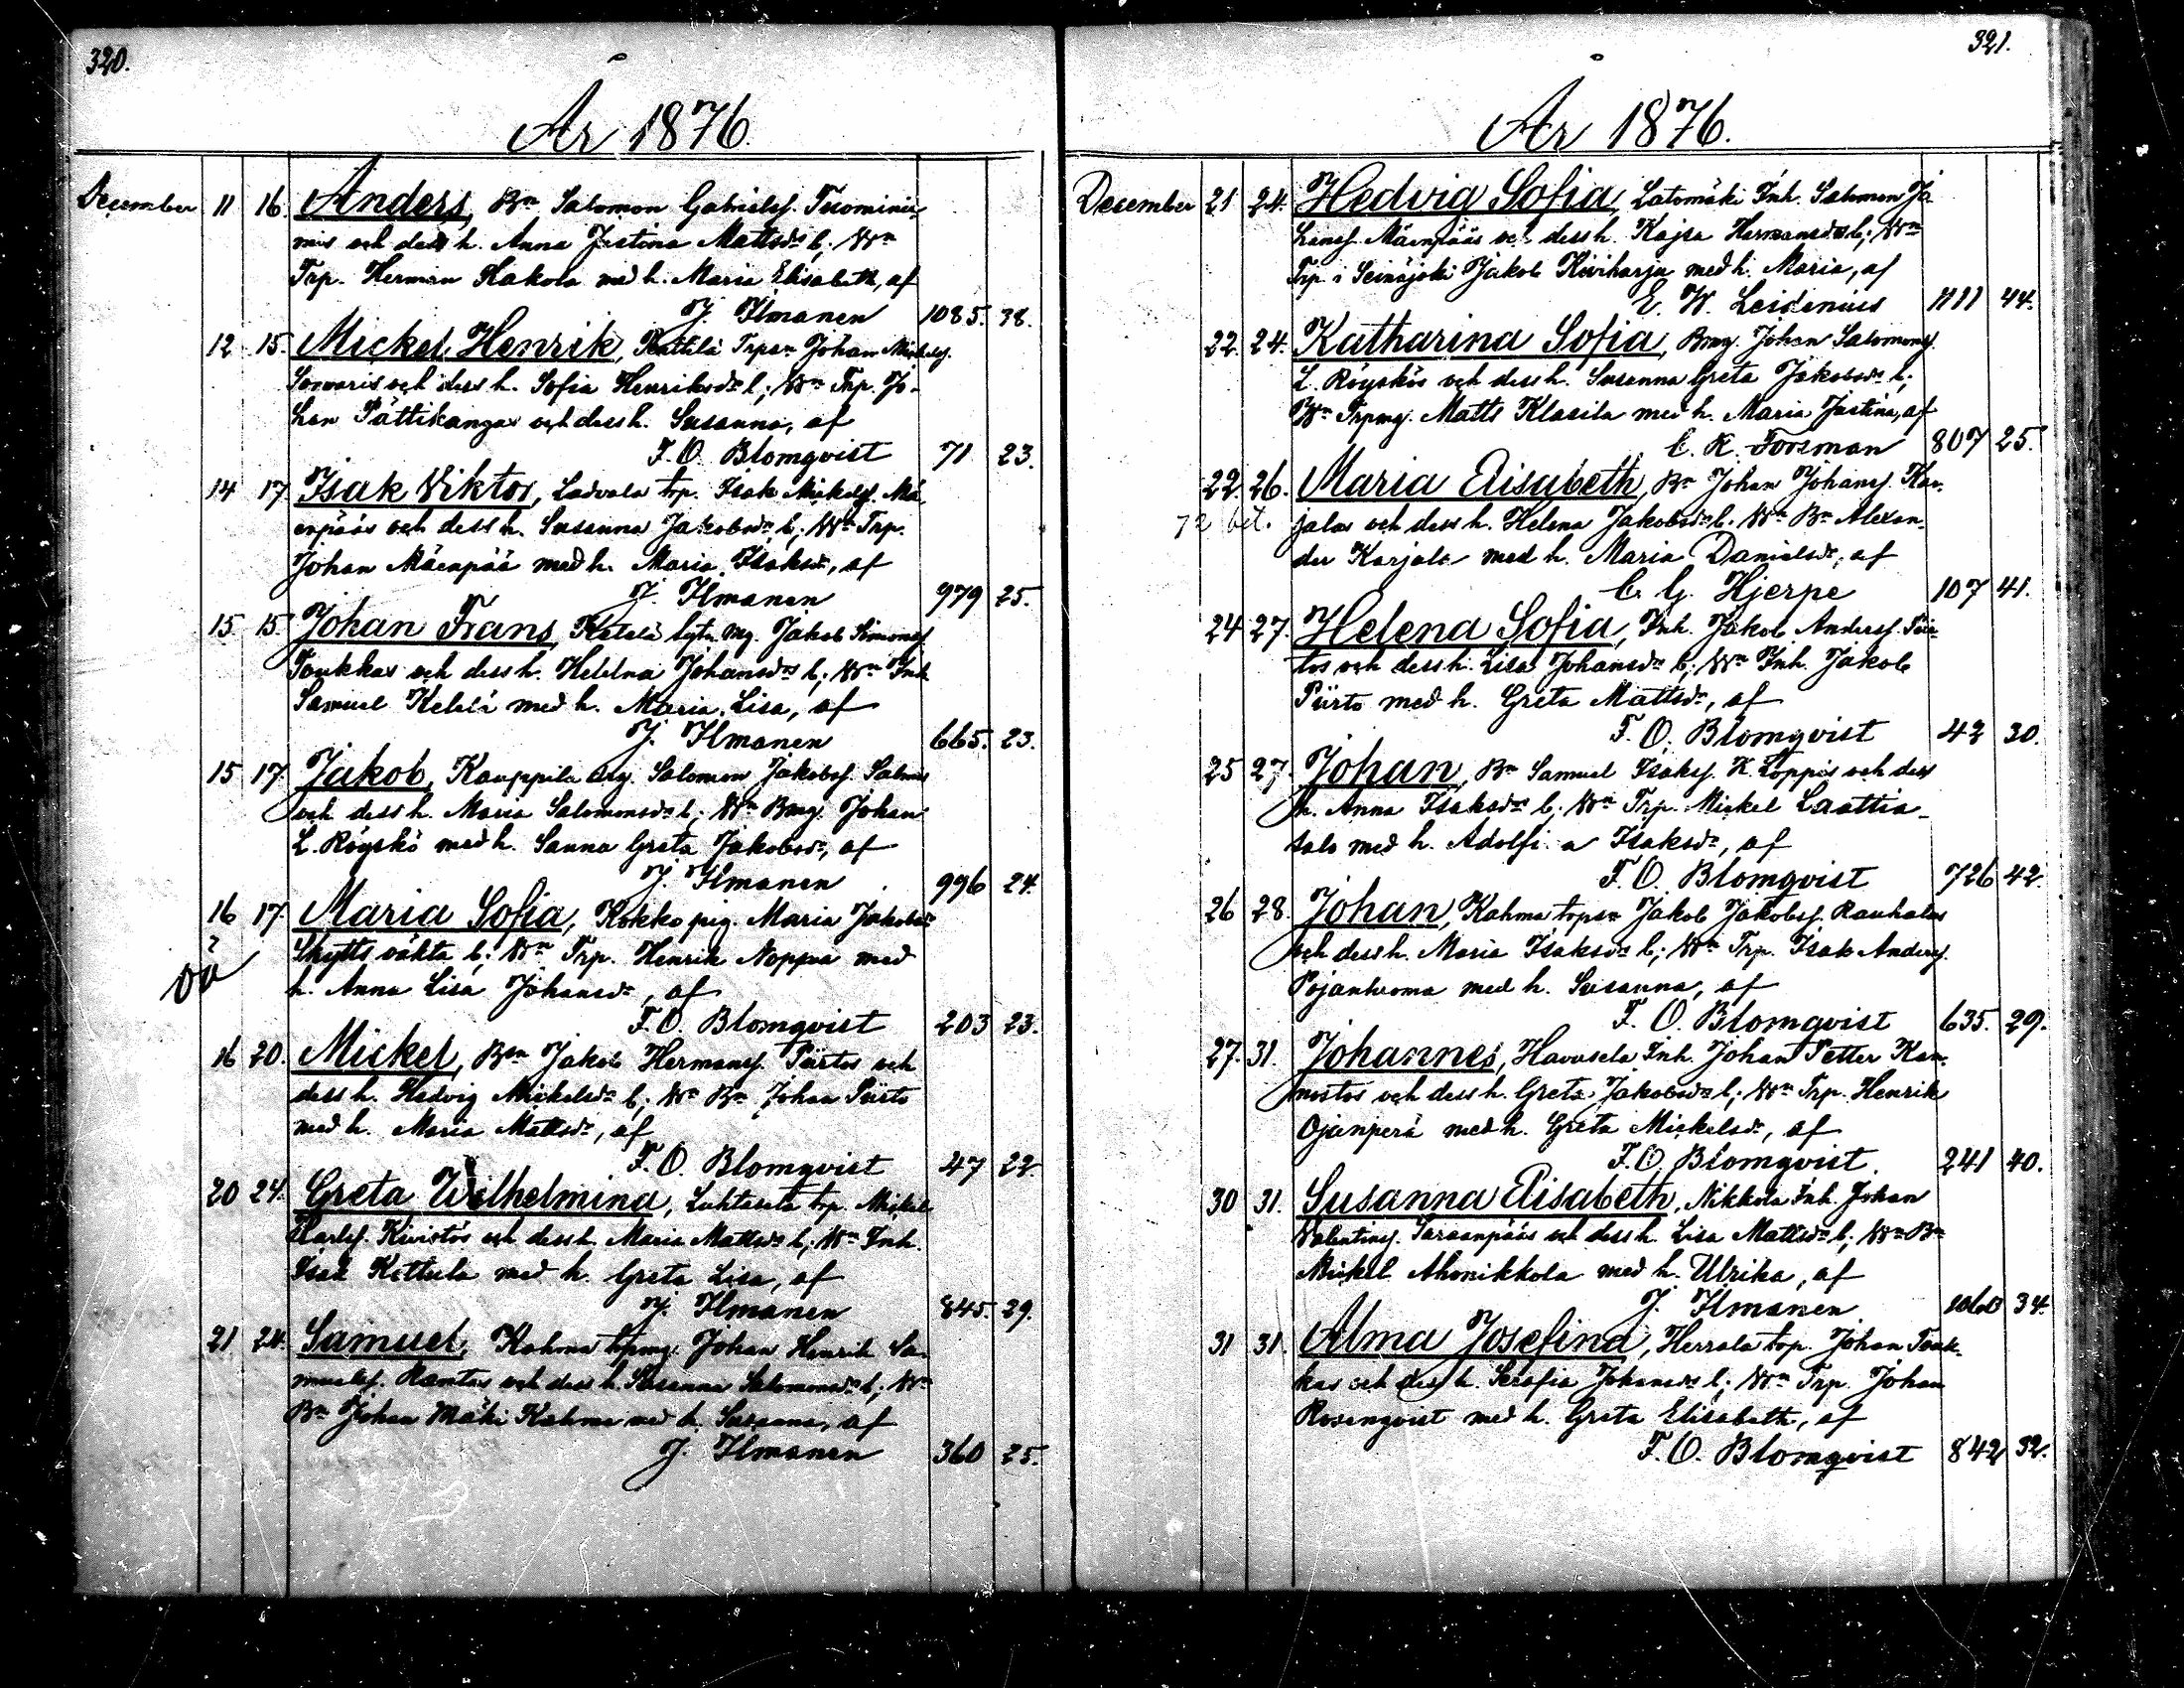 320.
År 1876.
December 11 16. Anders, Bn Salomon Gabrielss. Tuominie-
mis och dess h. Anna Justina Mattsdrs b; Wn
Trp. Herman Hakola med h. Maria Elisabeth, af
J. Ilmanen 1085. 38.
12 15. Mickel Henrik, Trpsn Johan Mickelss.
Sorvaris och dess h. Sofia Henriksdrs b; Wn Trp. Jo-
han Pättikangas och dess h. Susanna, af
F. O. Blomqvist 71 23.
14 17 Isak Viktor, Ladvala trp. Isak Mickelss. Mä-
enpääs och dess h. Susanna Jakobsdrs b; Wn Trp.
Johan Mäenpää med h. Maria Isaksdr, af
J. Ilmanen 979 25.
15 15. Johan Frans, Ketelä lytn mg. Jakob Simonss.
Toukkas och dess h. Helena Johansdrs b; Wn Inh.
Samuel Ketelä med h. Maria Lisa, af
J. Ilmanen 665. 23.
15 17. Jakob, Kauppila drg. Salomon Jakobss. Salmis
och dess h. Maria Salomonsdrs b; Wn Bmg. Johan
L. Röyskö med h. Sanna Greta Jakobsdr, af
J. Ilmanen 996 24.
16 17. Maria Sofia, Kokko pig. Maria Jakobsdr
? Skytts oäkta b; Wn Trp. Henrik Noppa med
oä h. Anna Lisa Johansdr, af
F. O. Blomqvist 203 23.
16 20. Mickel, Bsn Jakob Hermanss. Piirtos och
dess h. Hedvig Mickelsdrs b; Wn Bn Johan Piirto
med h. Maria Mattsdr, af
F. O. Blomqvist 47 22.
20 24. Greta Wilhelmina, Luhtasela trp. Mickel
Karlss. Kivistös och dess h. Maria Mattsdrs b; Wn Inh.
Isak Kettula med h. Greta Lisa, af
J. Ilmanen 845. 29.
21 24. Samuel, Kahma trpmg. Johan Henrik Sa-
muelss. Rantas och dess h. Susanna Salomonsdrs b; Wn
Bn Johan Mäki Kahma med h. Susanna, af
J. Ilmanen 360 25.
321.
År 1876.
December 21 24. Hedvig Sofia, Latomäki Inh. Salomon Jo-
hanss. Mäenpääs och dess h. Kajsa Hermansdrs b; Wn
Trp. i Seinäjoki Jakob Kiviharju med h. Maria, af
E. W. Leidenius 1111 44.
22. 24. Katharina Sofia, Bmg. Johan Salomonss.
L. Röyskös och dess h. Susanna Greta Jakobsdrs b;
Wn Trpmg. Matts Klasila med h. Maria Justina, af
C. R. Forsman 807 25.
22. 26. Maria Elisabeth, Bn Johan Johanss. Kar-
72 bet. jalas och dess h. Helena Jakobsdrs b. Wn Bn Alexan-
der Karjala med h. Maria Danielsdr, af
C. G. Hjerpe 107 41.
24 27. Helena Sofia, Inh. Jakob Anderss. Piir-
tos och dess h. Lisa Johansdrs b; Wn Inh. Jakob
Piirto med h. Greta Mattsdr, af
F. O. Blomqvist 42 30.
25 27. Johan, Bn Samuel Isakss. K. Loppis och dess
h. Anna Isaksdrs b; Wn Trp. Mickel Laattia-
talo med h. Adolfina Isaksdr, af
F. O. Blomqvist 726 42.
26 28. Johan, Kahma trpsn Jakob Jakobss. Rauhalas
och dess h. Maria Isaksdrs b; Wn Trp. Isak Anderss.
Pojanluoma med h. Susanna, af
F. O. Blomqvist 635. 29.
27. 31. Johannes, Havusela Inh. Johan Petter Kan-
nostos och dess h. Greta Jakobsdrs b; Wn Trp. Henrik
Ojanperä med h. Greta Mickelsdr, af
F. O. Blomqvist. 241 40.
30 31. Susanna Elisabeth, Nikkola Inh. Johan
Valentinss. Saraanpääs och dess h. Lisa Mattsdrs b; Wn Bn
Mickel Ahonikkola med h. Ulrika, af
J. Ilmanen 34.
31 31. Alma Josefina, Herrala trp. Johan Touk-
kas och dess h. Serafia Johansdrs b; Wn Trp. Johan
Rosenqvist med h. Greta Elisabeth, af
F. O. Blomqvist 842 32.